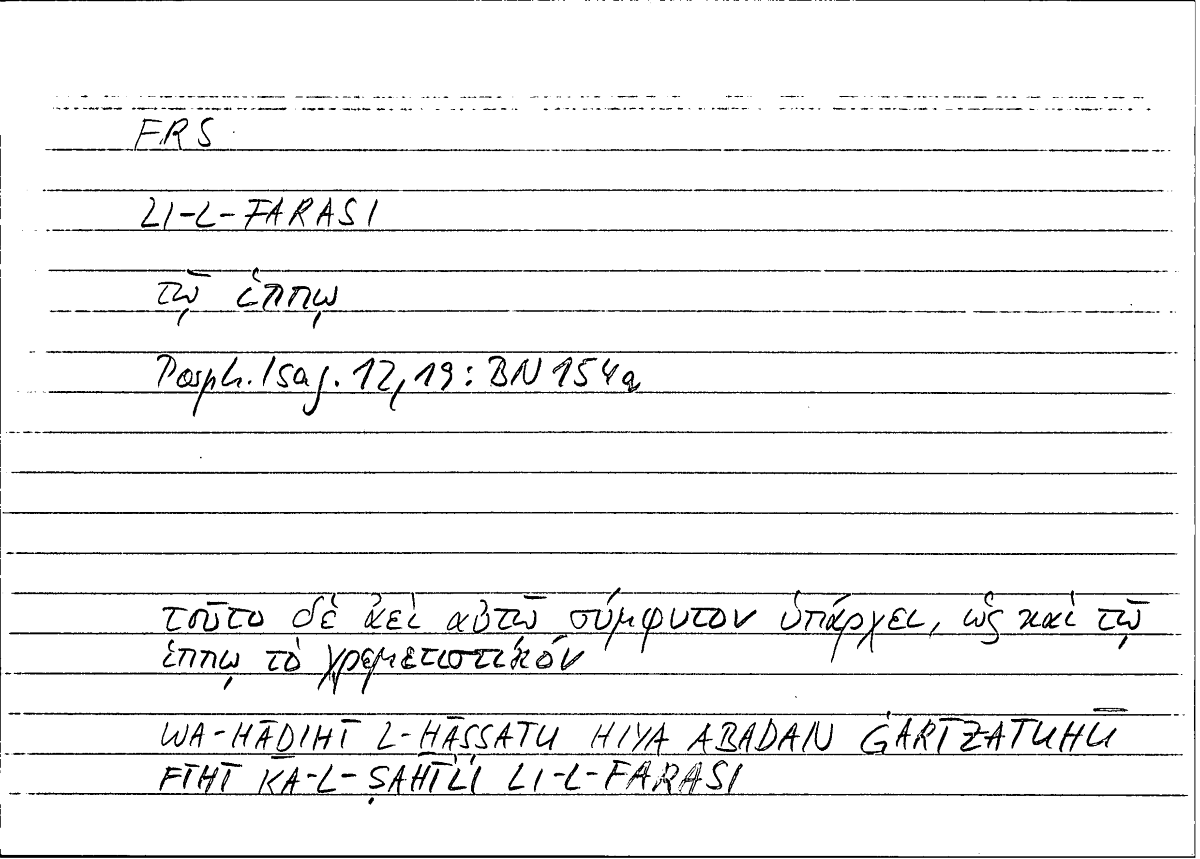 FRS
LI-L-FARASI
τῷ ἵππῳ
Porph. Isag. 12,19: BN 154a
τοῦτο δὲ ἀεὶ αὐτῷ σύμφυτον ὑπάρχει, ὡς καὶ τῷ
ἵππῳ τὸ χρεμετιστικόν
WA-HĀḎIHĪ L-ḪĀṢṢATU HIYA ABADAN ĠARĪZATUHŪ
FĪHĪ KA-L-ṢAHĪLI LI-L-FARASI